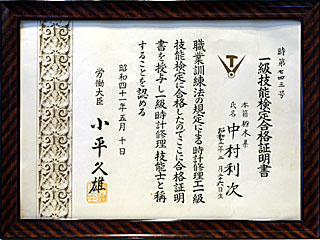 時第七四三号
一級技能検定合格証明書
本籍 栃木県
氏名 中村利次
年 二月二十六日生
職業訓練法の規定による時計修理工一級
技能検定に合格したのでここに合格証明
書を授与し一級時計修理技能士と称
することを認める
昭和四十一年五月十日
労働大臣 小平久雄